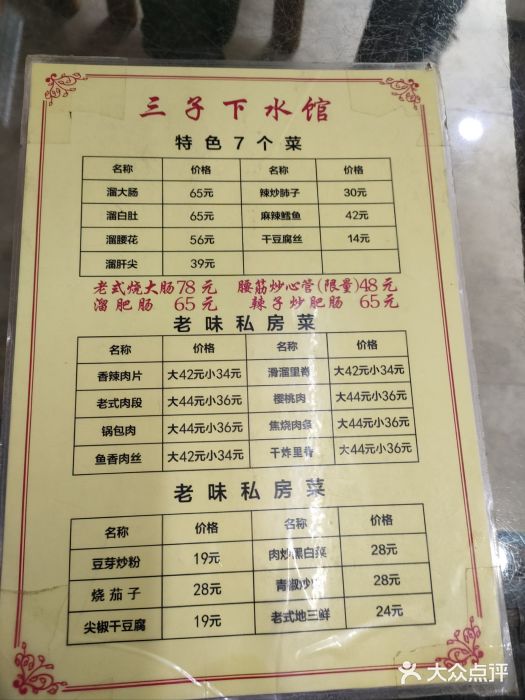 三子下水馆
特色7个菜
名称 价格 名称 价格
溜大肠 65元 辣炒肺子 30元
溜白肚 65元 麻辣鳕鱼 42元
溜腰花 56元 干豆腐丝 14元
溜肝尖 39元
老式烧大肠78元 腰筋炒心管(限量)48元
溜肥肠 65元 辣子炒肥肠 65元
老味私房菜
名称 价格 名称 价格
香辣肉片 大42元小34元 滑溜里脊 大42元小34元
老式肉段 大44元小36元 樱桃肉 大44元小36元
锅包肉 大44元小36元 焦烧肉条 大44元小36元
鱼香肉丝 大42元小34元 干炸里脊 大44元小36元
老味私房菜
名称 价格 名称 价格
豆芽炒粉 19元 肉炒黑白菜 28元
烧茄子 28元 青椒炒 28元
尖椒干豆腐 19元 老式地三鲜 24元
大众点评